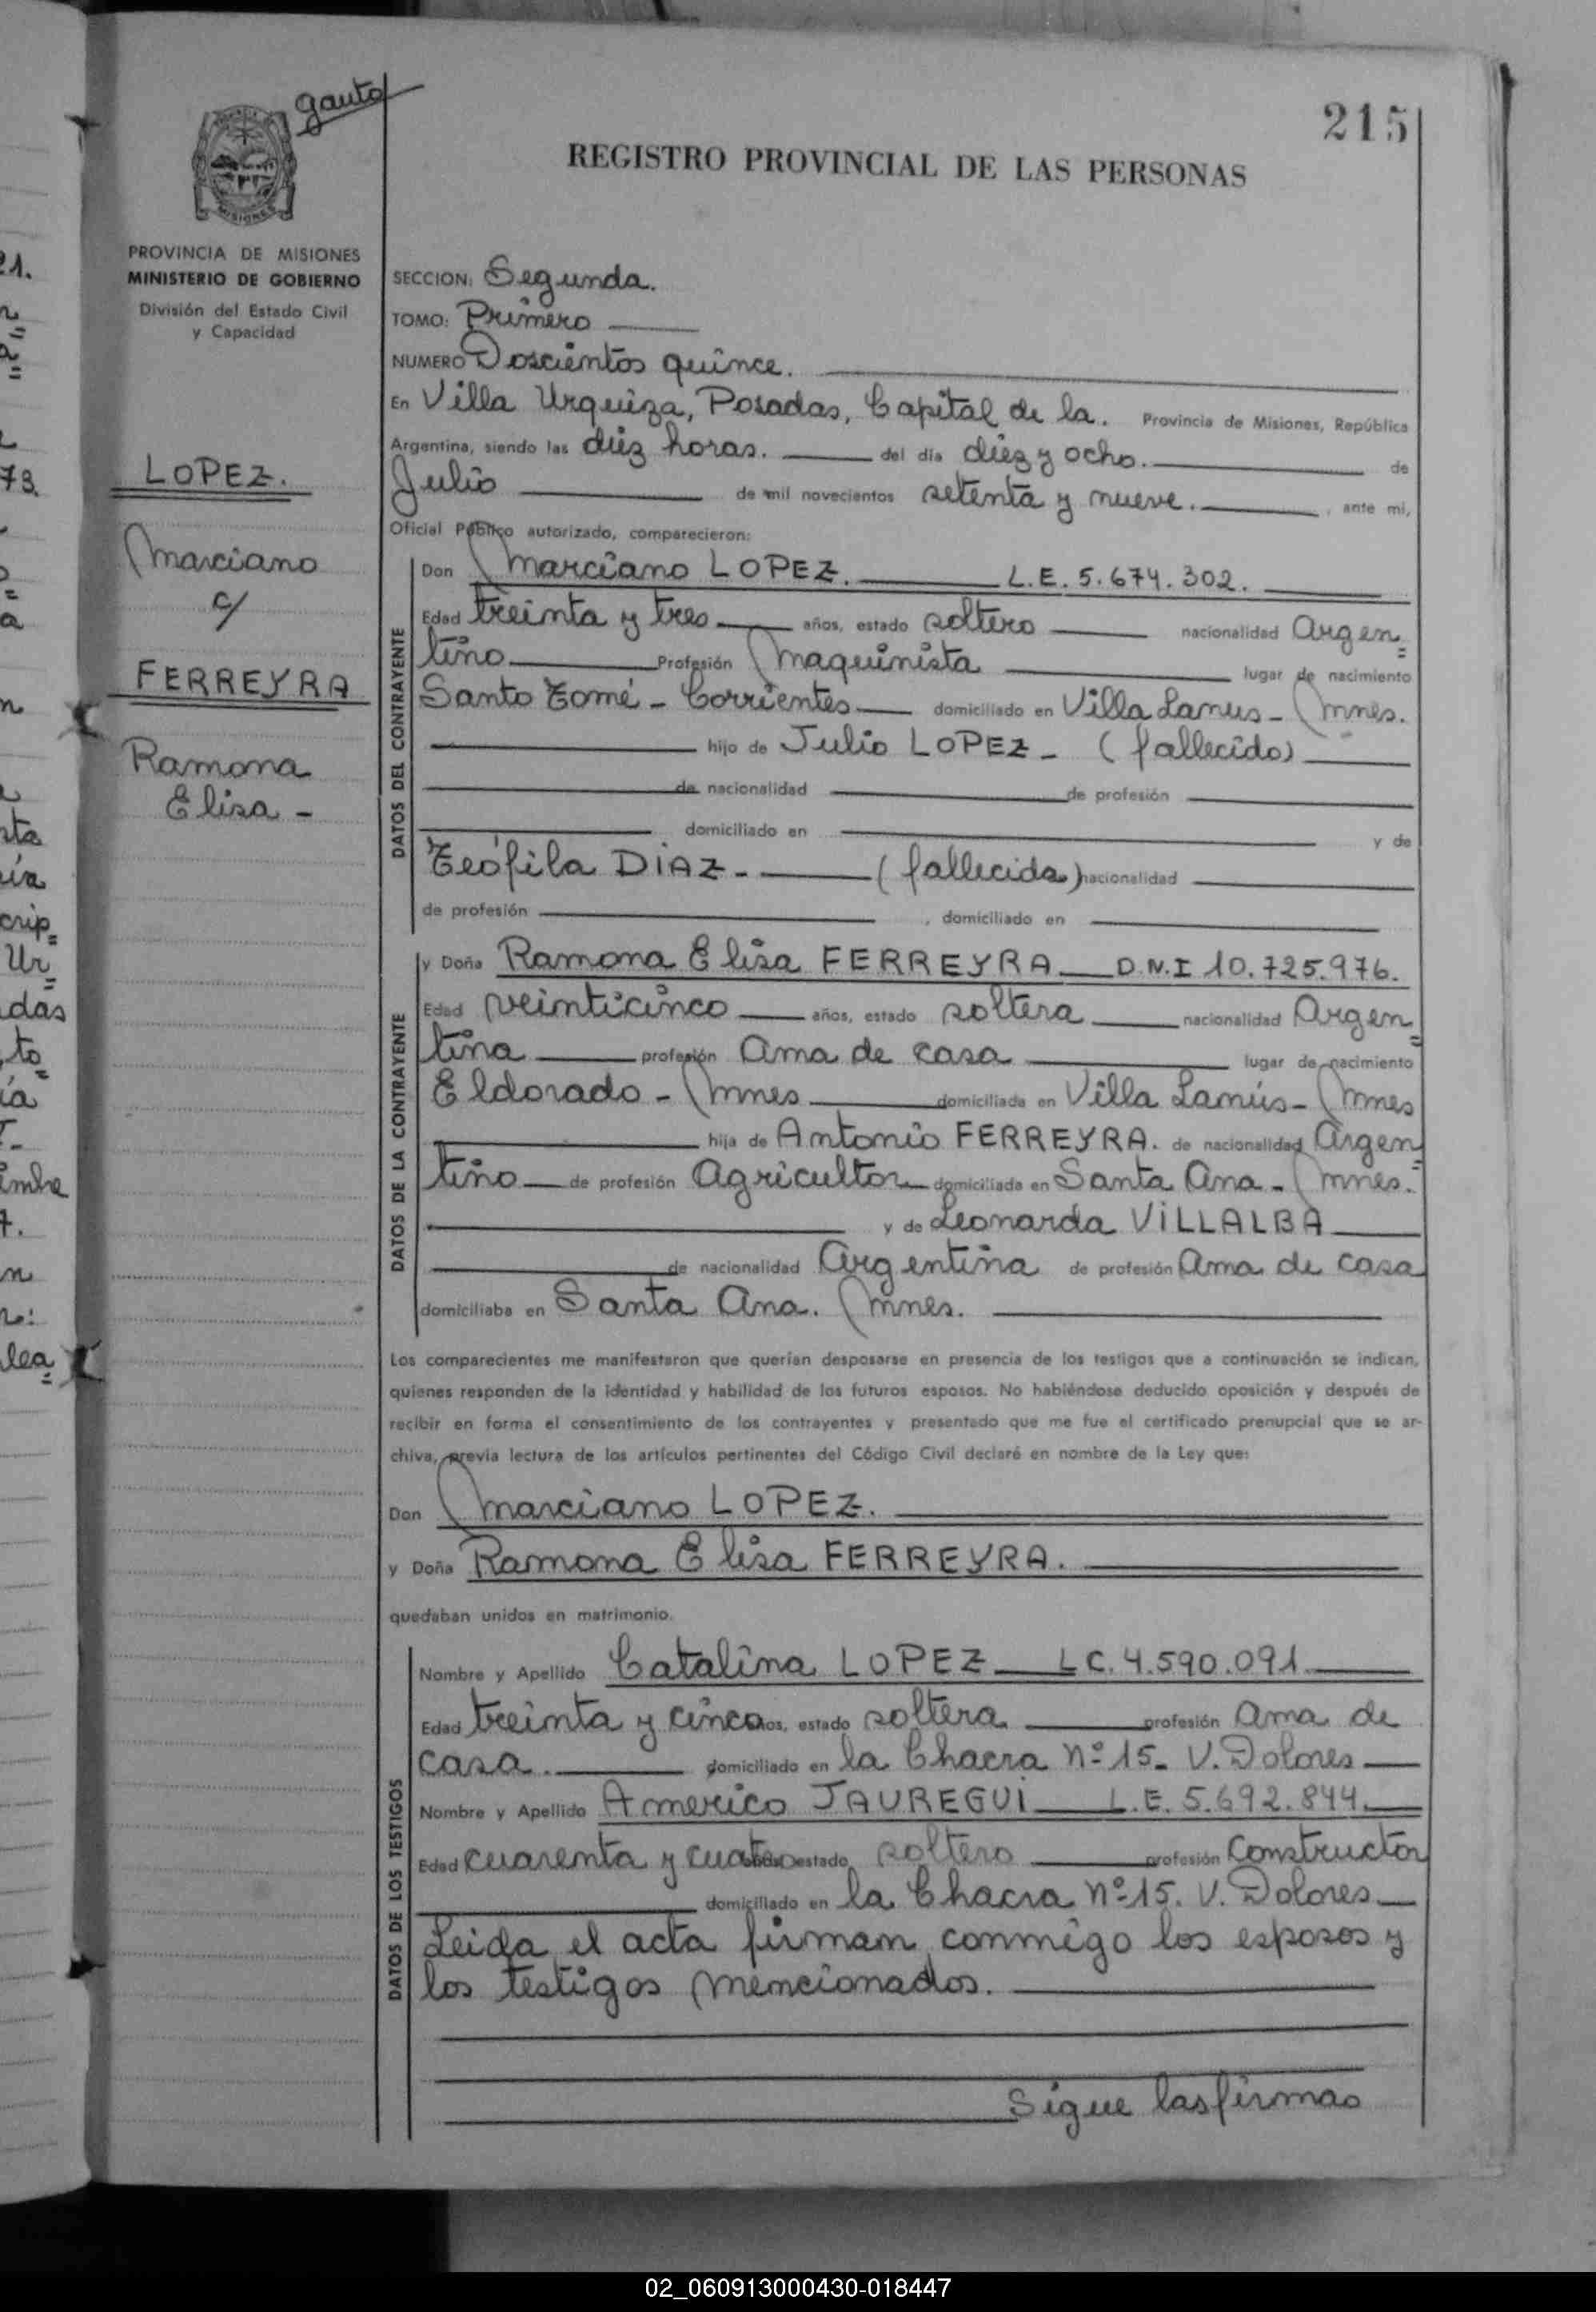 gauto
215
REGISTRO PROVINCIAL DE LAS PERSONAS
MISIONES
PROVINCIA DE MISIONES
MINISTERIO DE GOBIERNO
División del Estado Civil
y Capacidad
LOPEZ.
Marciano
c/
FERREYRA
Ramona
Elisa -
SECCION: Segunda.
TOMO: Primero
NUMERO Doscientos quince.
En Villa Urquiza, Posadas, Capital de la. Provincia de Misiones, República
Argentina, siendo las diez horas. del día diez y ocho. de
Julio de mil novecientos setenta y nueve. , ante mi,
Oficial Público autorizado, comparecieron:
DATOS DEL CONTRAYENTE
Don Marciano LOPEZ. L.E. 5.674.302.
Edad treinta y tres años, estado soltero nacionalidad Argen=
tino Profesión Maquinista lugar de nacimiento
Santo Tomé - Corrientes domiciliado en Villa Lanus - Mnes.
hijo de Julio LOPEZ - (fallecido)
de nacionalidad de profesión
domiciliado en y de
Teófila DIAZ - (fallecida) nacionalidad
de profesión , domiciliado en
DATOS DE LA CONTRAYENTE
y Doña Ramona Elisa FERREYRA D.N.I 10.725.976.
Edad veinticinco años, estado soltera nacionalidad Argen=
tina profesión Ama de casa lugar de nacimiento
Eldorado - Mnes domiciliada en Villa Lanús - Mnes
hija de Antonio FERREYRA. de nacionalidad Argen=
tino de profesión Agricultor domiciliada en Santa Ana - Mnes.
y de Leonarda VILLALBA
de nacionalidad Argentina de profesión Ama de casa
domiciliaba en Santa Ana. Mnes.
Los comparecientes me manifestaron que querían desposarse en presencia de los testigos que a continuación se indican,
quienes responden de la identidad y habilidad de los futuros esposos. No habiéndose deducido oposición y después de
recibir en forma el consentimiento de los contrayentes y presentado que me fue el certificado prenupcial que se ar-
chiva, previa lectura de los artículos pertinentes del Código Civil declaré en nombre de la Ley que:
Don Marciano LOPEZ.
y Doña Ramona Elisa FERREYRA.
quedaban unidos en matrimonio.
DATOS DE LOS TESTIGOS
Nombre y Apellido Catalina LOPEZ LC. 4.590.091.
Edad treinta y cinco años, estado soltera profesión Ama de
casa. domiciliado en la Chacra Nº 15. V. Dolores
Nombre y Apellido Americo JAUREGUI L.E. 5.692.844.
Edad cuarenta y cuatro años estado soltero profesión Constructor
domiciliado en la Chacra Nº 15. V. Dolores
Leida el acta firman conmigo los esposos y
los testigos mencionados.
Sigue las firmas
02_060913000430-018447